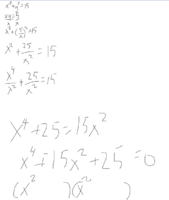 x²+y²=15
xy=5
x x
x²+(5/x)²=15
x²+25/x²=15
x⁴/x²+25/x²=15
x⁴+25=15x²
x⁴-15x²+25=0
(x² )(x² )